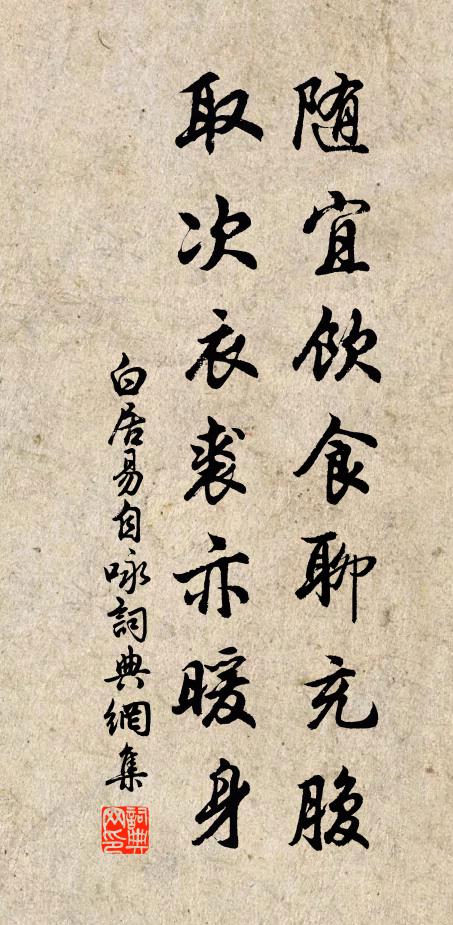 随宜飲食聊充腹
取次衣裘亦暖身
白居易自咏詞典網集
詞典網印